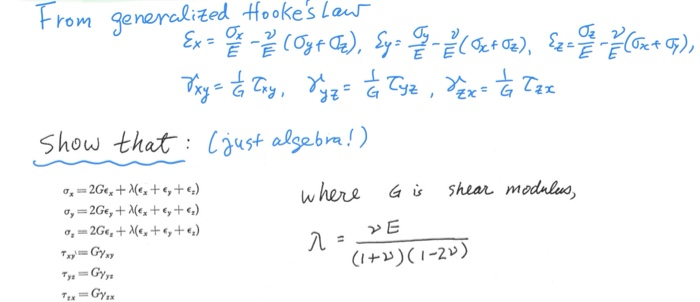 From generalized Hooke's Law
εx = σx/E - ν/E (σy + σz), εy = σy/E - ν/E (σx + σz), εz = σz/E - ν/E (σx + σy),
γxy = 1/G τxy, γyz = 1/G τyz, γzx = 1/G τzx
Show that: (just algebra!)
σx = 2Gϵx + λ(ϵx + ϵy + ϵz)
σy = 2Gϵy + λ(ϵx + ϵy + ϵz)
σz = 2Gϵz + λ(ϵx + ϵy + ϵz)
τxy = Gγxy
τyz = Gγyz
τzx = Gγzx
where G is shear modulus,
λ = νE / (1+ν)(1-2ν)